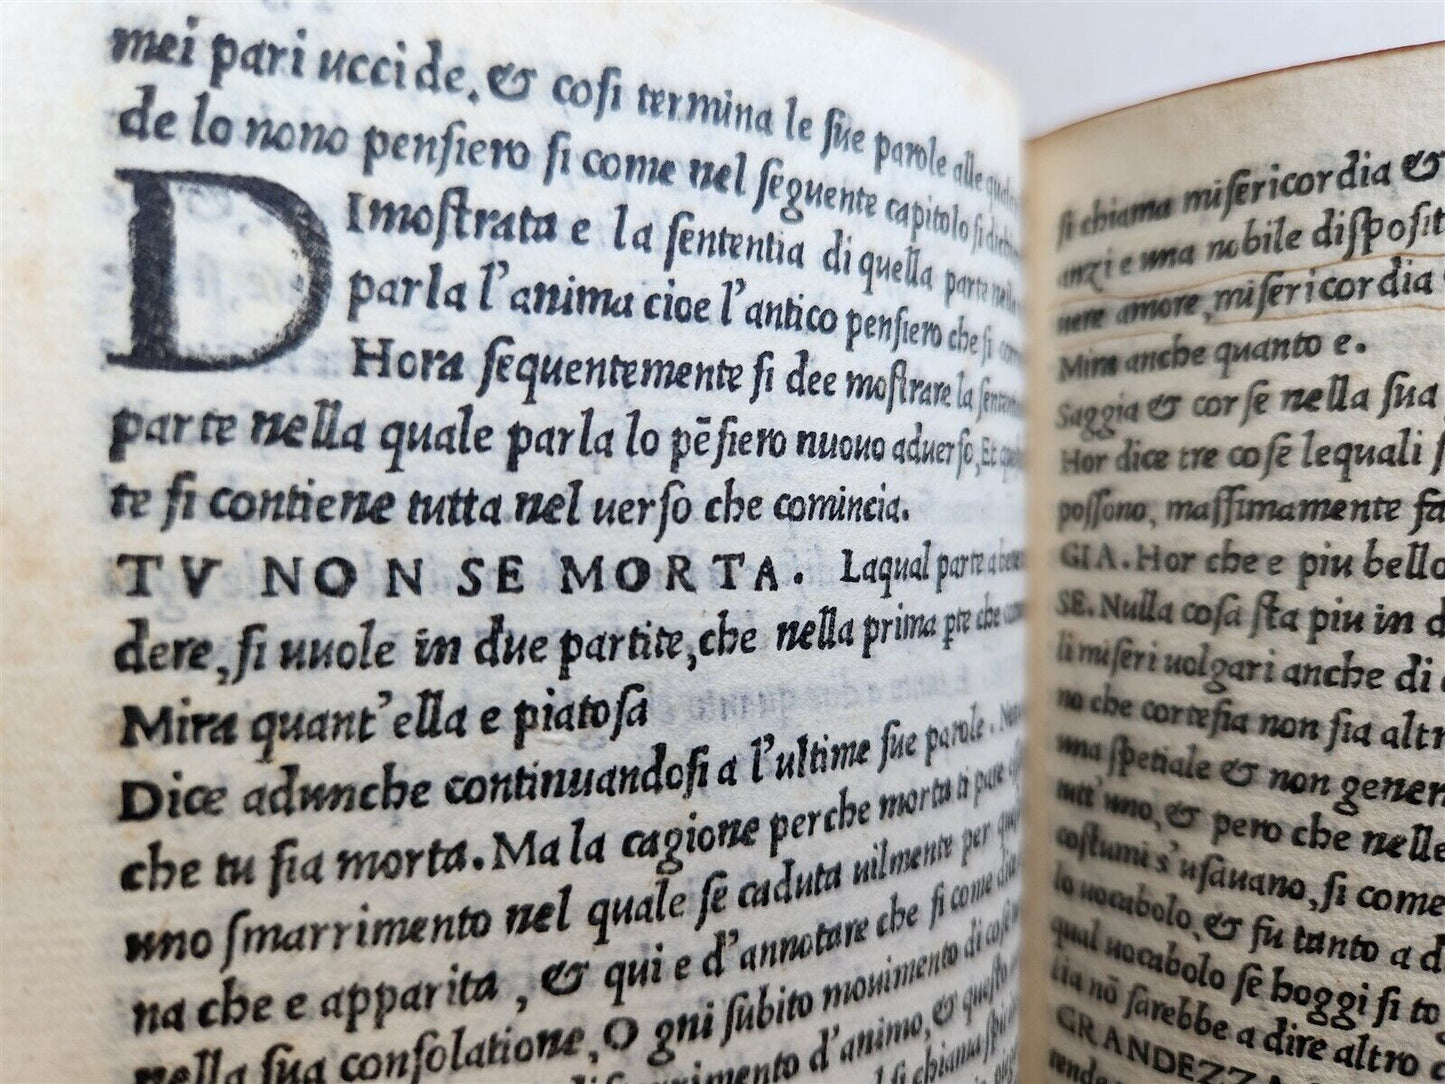 mei pari uccide, & cosi termina le sue parole alle
de lo nono pensiero si come nel seguente capitolo si
DImostrata e la sententia di quella parte nella
parla l'anima cioe l'antico pensiero che si
Hora sequentemente si dee mostrare la
parte nella quale parla lo pēsiero nuouo aduerso, Et
te si contiene tutta nel uerso che comincia.
TV NON SE MORTA. Laqual parte a bene
dere, si uuole in due partite, che nella prima che
Mira quant'ella e piatosa
Dice adunche continuandosi a l'ultime sue parole.
che tu sia morta. Ma la cagione perche morta ti pare
uno smarrimento nel quale se caduta uilmente per
na che e apparita, & qui e d'annotare che si come
nella sua consolatione, O gni subito mouimento di cose
d'animo, & questo
si chiama
si chiama misericordia &
anzi e una nobile
uere amore, misericordia
Mira anche quanto e.
Saggia & corse nella sua
Hor dice tre cose lequali
possono, massimamente
GIA. Hor che e piu bello
SE. Nulla cosa sta piu in
li miseri uolgari anche di
no che cortesia non sia
una spetiale & non
uno, & pero che nelle
costumi s'usauano, si come
lo uocabolo, & fu tanto a
qual uocabolo se hoggi si
lia nō sarebbe a dire altro
GRANDEZZA